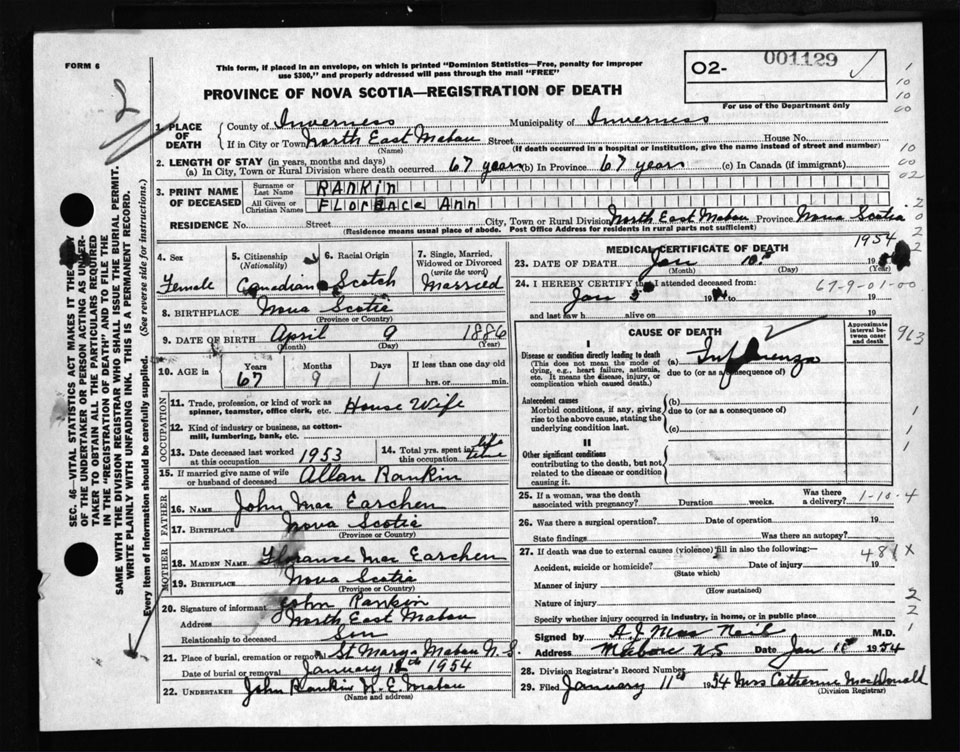 FORM 6
This form, if placed in an envelope, on which is printed "Dominion Statistics—Free, penalty for improper
use $300," and properly addressed will pass through the mail "FREE"
PROVINCE OF NOVA SCOTIA—REGISTRATION OF DEATH
O2- 001129
For use of the Department only
2
SEC. 46—VITAL STATISTICS ACT MAKES IT THE
OF THE UNDERTAKER OR PERSON ACTING AS UNDER-
TAKER TO OBTAIN ALL THE PARTICULARS REQUIRED
IN THE "REGISTRATION OF DEATH" AND TO FILE THE
SAME WITH THE DIVISION REGISTRAR WHO SHALL ISSUE THE BURIAL PERMIT.
WRITE PLAINLY WITH UNFADING INK. THIS IS A PERMANENT RECORD.
Every item of information should be carefully supplied. (See reverse side for instructions.)
1. PLACE OF DEATH
County of Inverness Municipality of Inverness
If in City or Town North East Mabou Street House No.
(Name) (If death occurred in a hospital or institution, give the name instead of street and number)
2. LENGTH OF STAY (in years, months and days)
(a) In City, Town or Rural Division where death occurred 67 years (b) In Province 67 years (c) In Canada (if immigrant)
3. PRINT NAME OF DECEASED
Surname or Last Name RANKIN
All Given or Christian Names FLORENCE ANN
RESIDENCE No. Street City, Town or Rural Division North East Mabou Province Nova Scotia
(Residence means usual place of abode. Post Office Address for residents in rural parts not sufficient)
4. Sex Female
5. Citizenship (Nationality) Canadian
6. Racial Origin Scotch
7. Single, Married, Widowed or Divorced (write the word) Married
8. BIRTHPLACE Nova Scotia
(Province or Country)
9. DATE OF BIRTH April 9 1886
(Month) (Day) (Year)
10. AGE in Years 67 Months 9 Days 1 If less than one day old hrs. or min.
OCCUPATION
11. Trade, profession or kind of work as spinner, teamster, office clerk, etc. House Wife
12. Kind of industry or business, as cotton-mill, lumbering, bank, etc.
13. Date deceased last worked at this occupation 1953
14. Total yrs. spent in this occupation life time
15. If married give name of wife or husband of deceased Allan Rankin
FATHER
16. Name John Mac Earchen
17. Birthplace Nova Scotia
(Province or Country)
MOTHER
18. Maiden Name Florance Mac Earchen
19. Birthplace Nova Scotia
(Province or Country)
20. Signature of informant John Rankin
Address North East Mabou
Relationship to deceased Son
21. Place of burial, cremation or removal St Marys Mabou N.S.
Date of burial or removal January 12th 1954
22. Undertaker John Rankin N.E. Mabou
(Name and address)
MEDICAL CERTIFICATE OF DEATH
1954
23. DATE OF DEATH Jan 10th 19
(Month) (Day) (Year)
24. I HEREBY CERTIFY that I attended deceased from:
Jan 19 to 19
and last saw h alive on 19
67-9-01-00
CAUSE OF DEATH
Approximate interval between onset and death
963
I
Disease or condition directly leading to death
(This does not mean the mode of dying, e.g., heart failure, asthenia, etc. It means the disease, injury, or complication which caused death.)
(a) Influenza
due to (or as a consequence of)
Antecedent causes
Morbid conditions, if any, giving rise to the above cause, stating the underlying condition last.
(b)
due to (or as a consequence of)
(c)
II
Other significant conditions
contributing to the death, but not related to the disease or condition causing it.
25. If a woman, was the death associated with pregnancy? Duration weeks. Was there a delivery?
1-10-4
26. Was there a surgical operation? Date of operation 19
State findings Was there an autopsy?
27. If death was due to external causes (violence) fill in also the following:
481X
Accident, suicide or homicide? Date of injury 19
(State which)
Manner of injury
(How sustained)
Nature of injury
Specify whether injury occurred in industry, in home, or in public place
Signed by A.J. Mac Neil M.D.
Address Mabou NS Date Jan 1954
28. Division Registrar's Record Number
29. Filed January 11th 1954 Miss Catherine MacDonald
(Division Registrar)